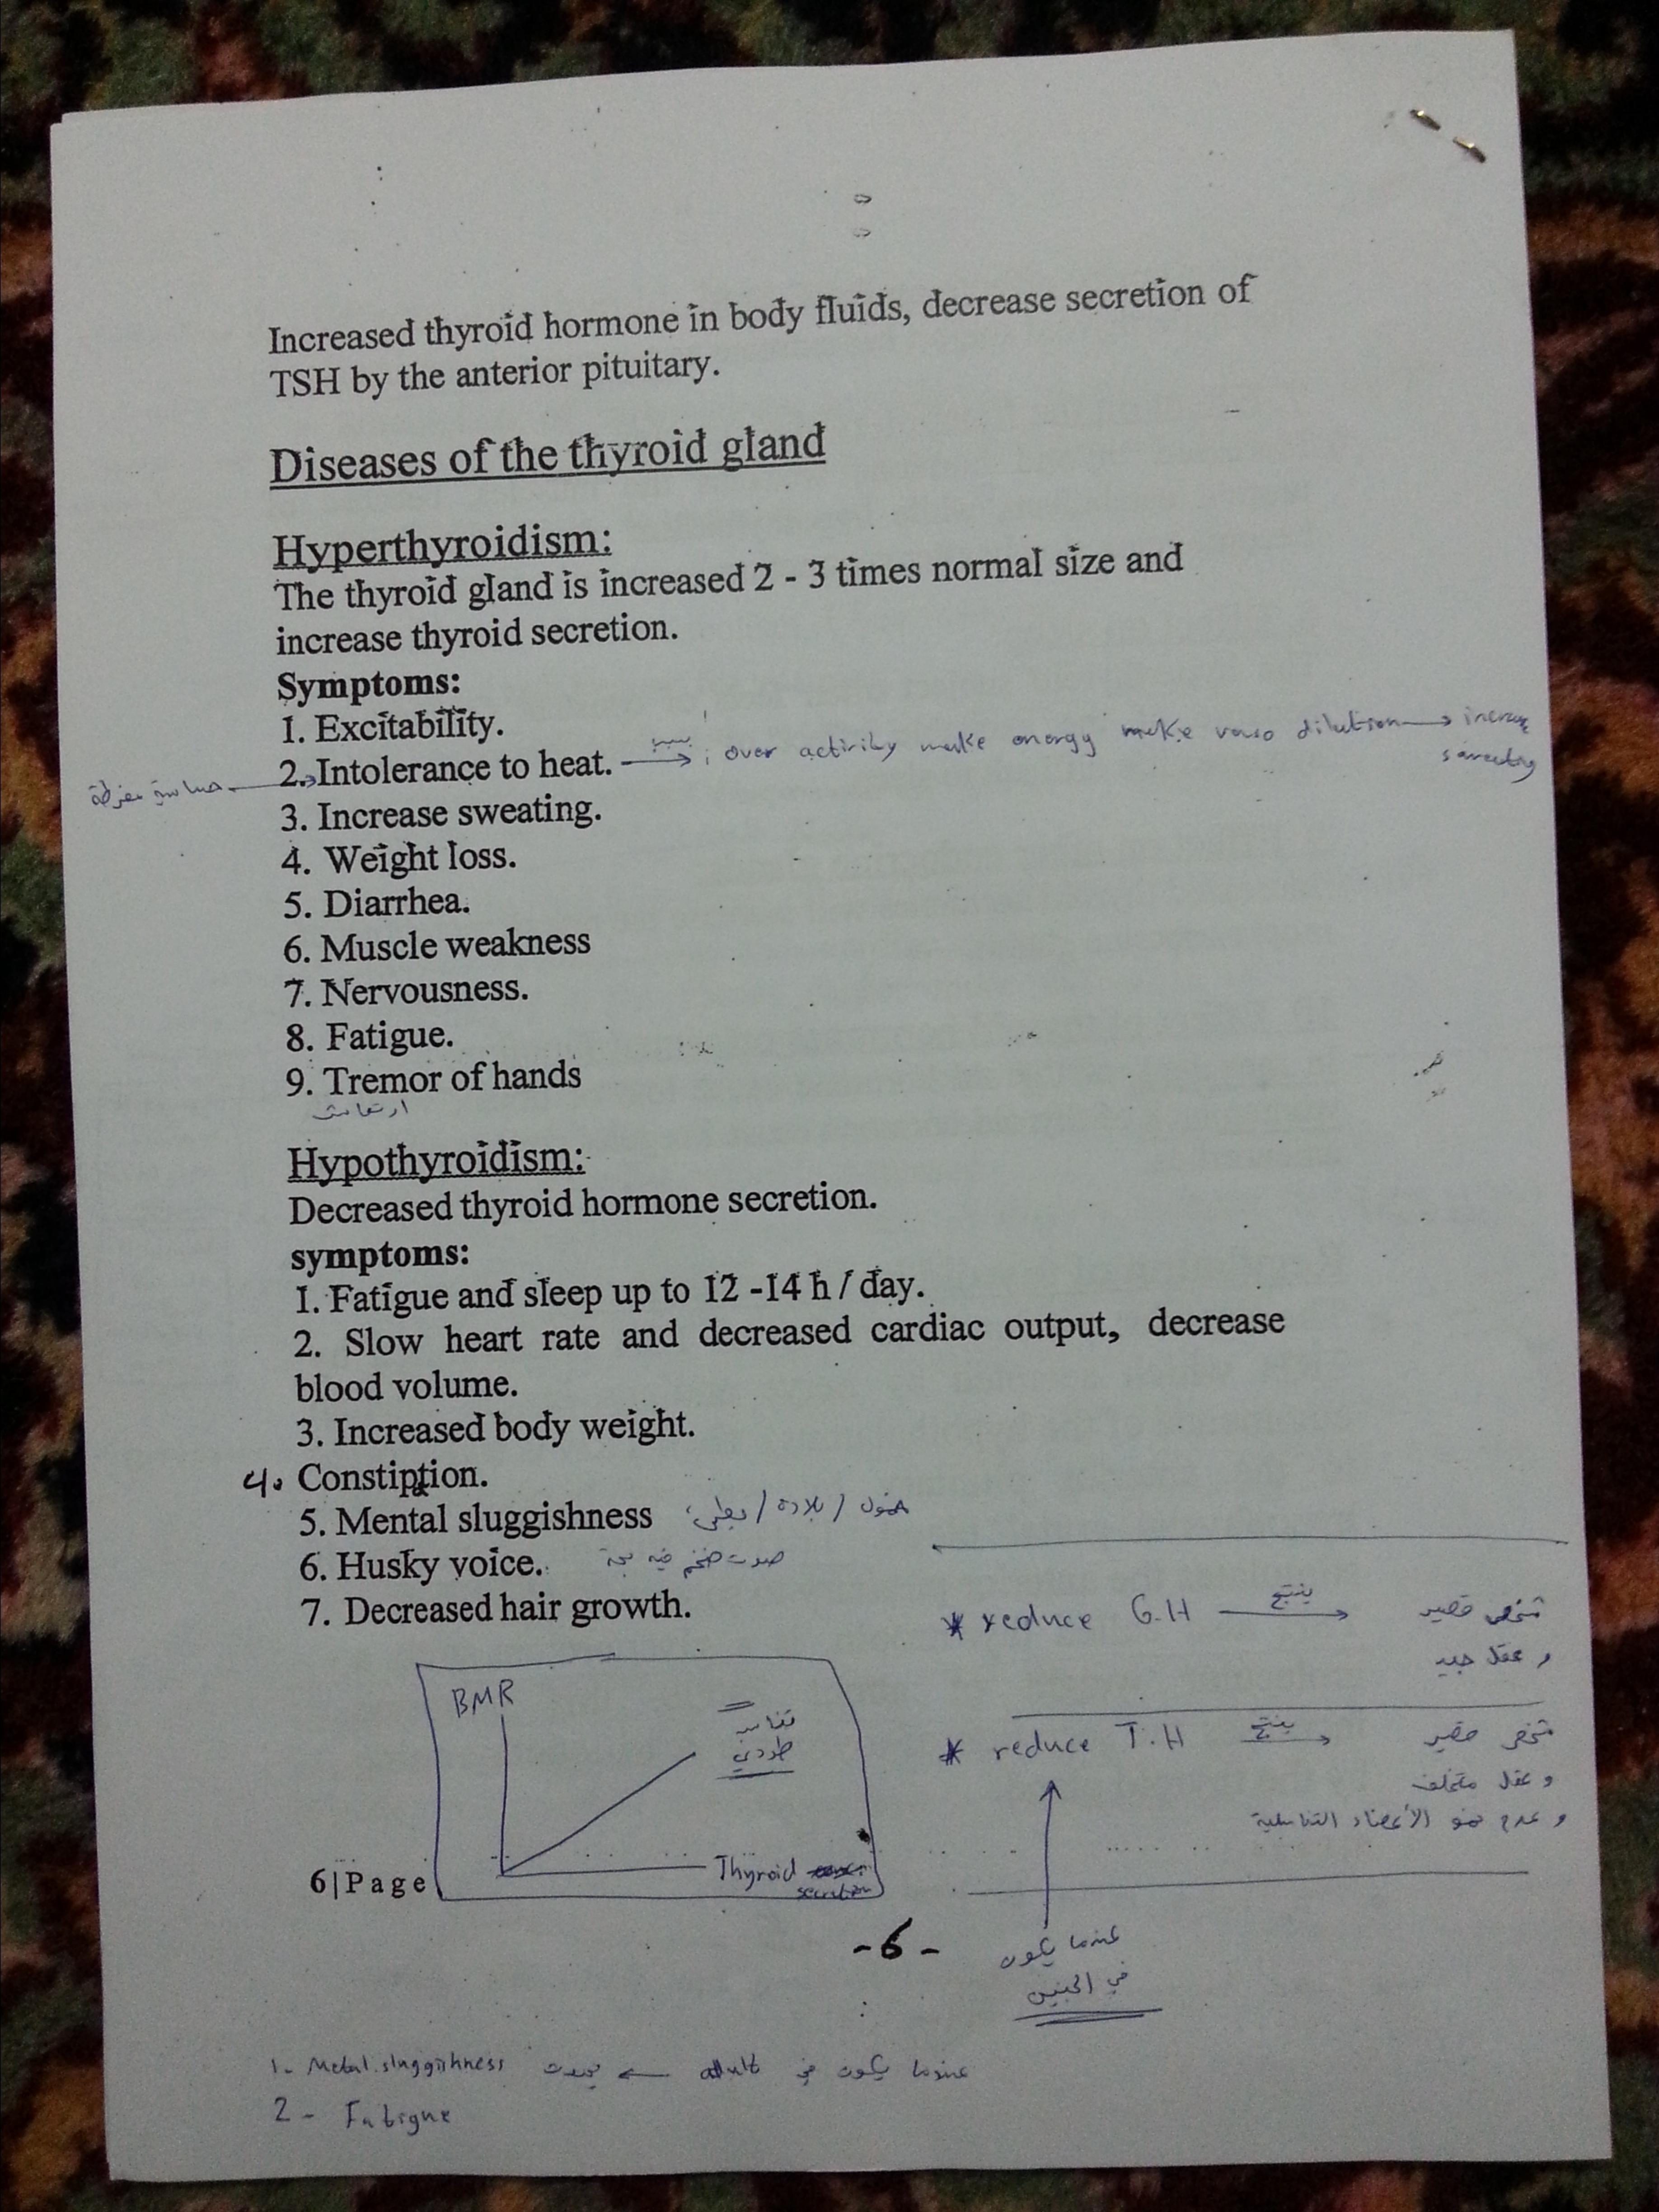 Increased thyroid hormone in body fluids, decrease secretion of
TSH by the anterior pituitary.
Diseases of the thyroid gland
Hyperthyroidism:
The thyroid gland is increased 2 - 3 times normal size and
increase thyroid secretion.
Symptoms:
1. Excitability.
2. Intolerance to heat. → over activity make energy make vaso dilution → increase
sweating
حساسية مفرطة
3. Increase sweating.
4. Weight loss.
5. Diarrhea.
6. Muscle weakness
7. Nervousness.
8. Fatigue.
9. Tremor of hands
ارتعاش
Hypothyroidism:
Decreased thyroid hormone secretion.
symptoms:
1. Fatigue and sleep up to 12 -14 h / day.
2. Slow heart rate and decreased cardiac output, decrease
blood volume.
3. Increased body weight.
4. Constiption.
5. Mental sluggishness خمول / بلادة / بطيء
6. Husky voice. صوت ضخم فيه بحة
7. Decreased hair growth.
* reduce G.H ينتج → شخص قصير
و عقل جيد
BMR
تناسب
طردي
Thyroid
secretion
* reduce T.H ينتج → شخص قصير
و عقل متخلف
و عدم نمو الأعضاء التناسلية
6|Page
-6-
عندما يكون
في الجنين
1- Metal sluggishness يحدث ← adult عندما يكون في
2- Fatigue